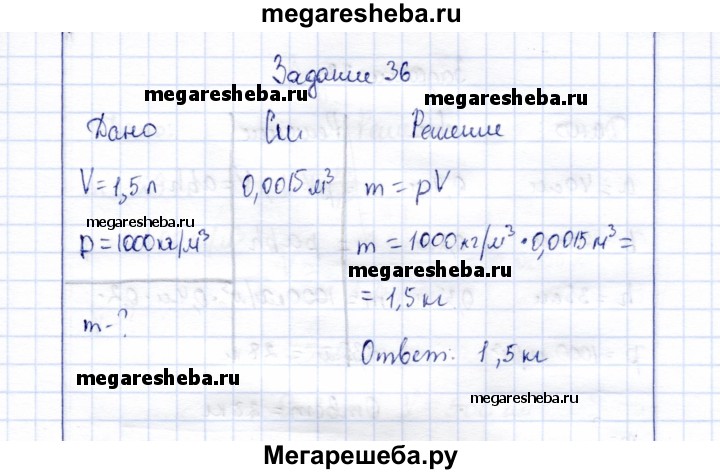 megaresheba.ru
Задание 36
megaresheba.ru megaresheba.ru
Дано Си Решение
V=1,5л 0,0015м³ m=ρV
megaresheba.ru
ρ=1000кг/м³ m=1000кг/м³·0,0015м³=
megaresheba.ru
=1,5кг
m-?
Ответ: 1,5кг
megaresheba.ru
megaresheba.ru
Мегарешеба.ру